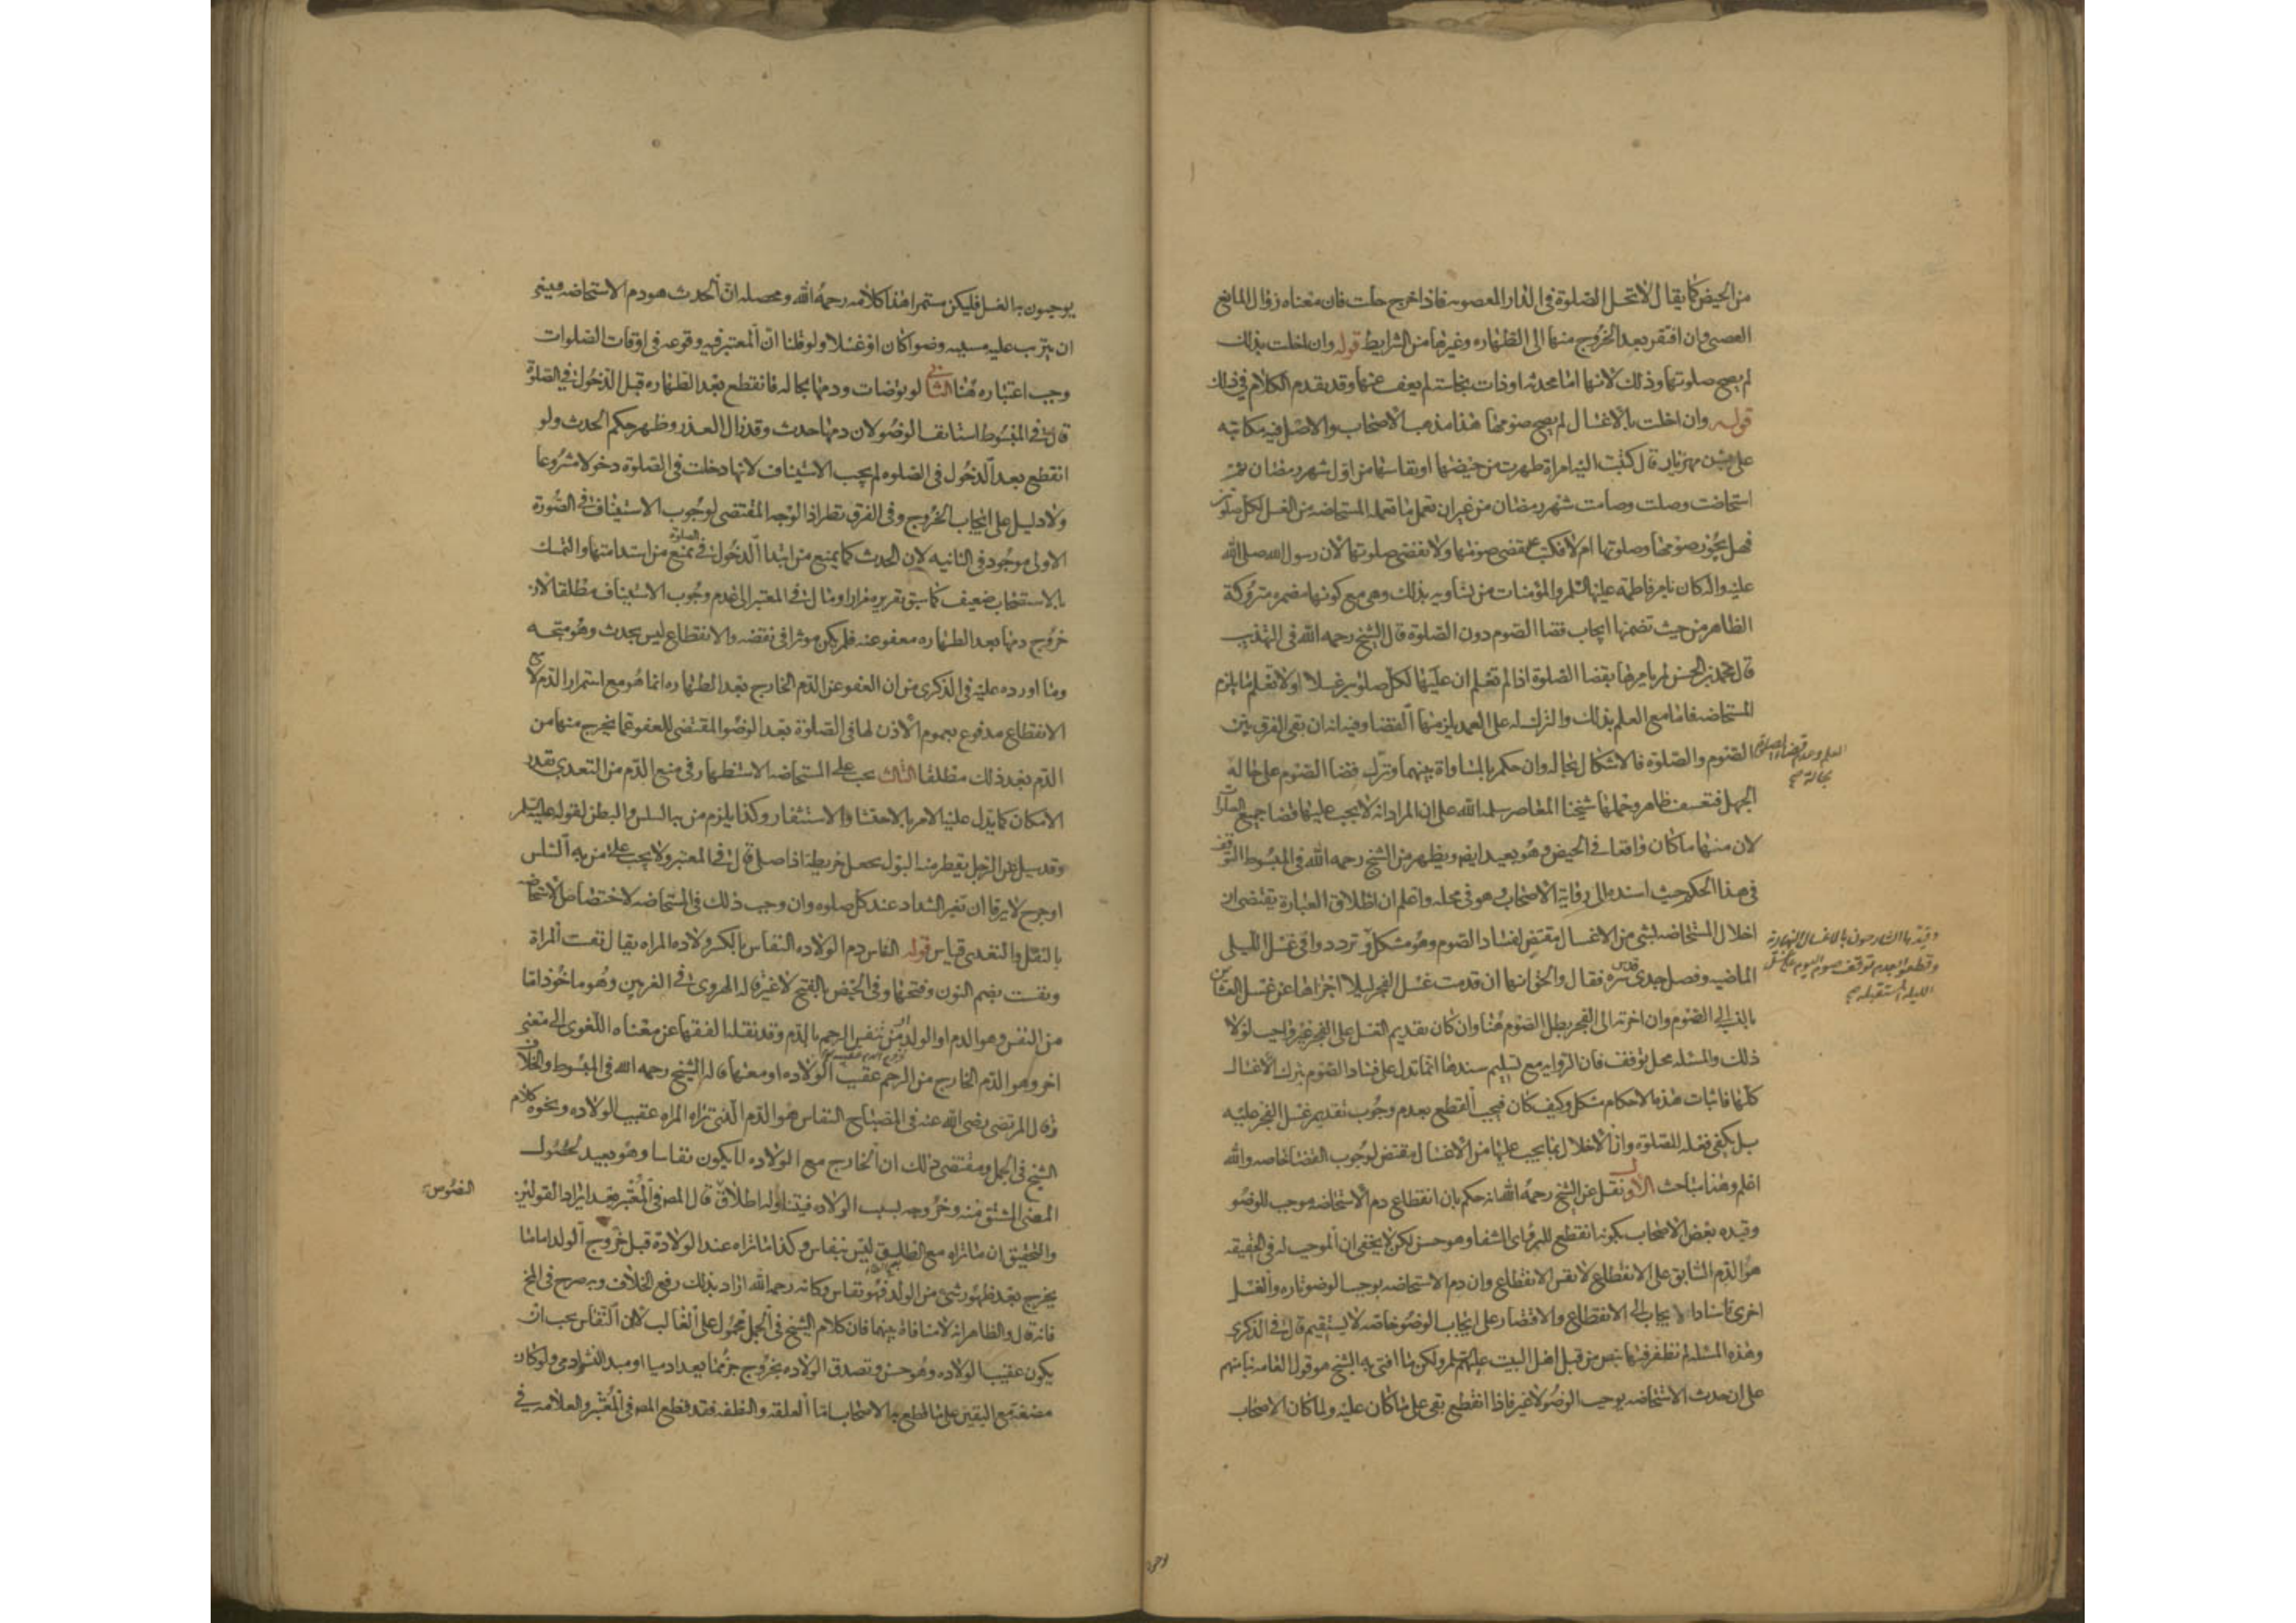 من الحيض كما يقال لا تحل الصلوة فى الدار المغصوبه فاذا خرج حلت فان معناه زوال المانع
الغصبى وان افتقر بعد الخروج منها الى الطهاره وغيرها من الشرايط قوله وان اخلت بذلك
لم يصح صلوتها وذلك لانها اما محدثه او ذات نجاسة لم يعف عنها وقد يقدم الكلام فى ذلك
قوله وان اخلت بالاغسال لم يصح صومها هذا مذهب الاصحاب والاصل فيه مكاتبه
على بن مهزيار قال كتبت اليه امراة طهرت من حيضها او نفاسها من اول شهر رمضان ثم
استحاضت وصلت وصامت شهر رمضان من غير ان تعمل ما تعمله المستحاضه من الغسل لكل صلوتين
فهل يجوز صومها وصلوتها ام لا فكتب تقضى صومها ولا تقضى صلوتها لان رسول الله صلى الله
عليه واله كان يامر فاطمة عليها السلم والمؤمنات من نسايه بذلك وهى مع كونها مضمره متروكة
الظاهر من حيث تضمنها ايجاب قضا الصوم دون الصلوة قال الشيخ رحمه الله فى التهذيب
قال محمد بن الحسن لم يامرها بقضا الصلوة اذا لم تعلم ان عليها لكل صلوتين غسلا او لا تعلم ما يلزم
المستحاضه فاما مع العلم بذلك والترك له على العمد يلزمها القضا وفيه انه ان بقى الفرق بين
الصوم والصلوة فالاشكال بحاله وان حكم بالمساواة بينهما ونزل قضا الصوم على حالة
العلم وعدم قضاء الصلوة
بحالة صح
الجهل فتعسف ظاهر وحملها شيخنا المعاصر سلمه الله على ان المراد انه لا يجب عليها قضا جميع الصلوات
لان منها ما كان واقعا فى الحيض وهو بعيد ايضا ويظهر من الشيخ رحمه الله فى المبسوط التوقف
فى هذا الحكم حيث اسنده الى رواية الاصحاب وهو فى محله واعلم ان اطلاق العبارة يقتضى ان
اخلال المستحاضه بشى من الاغسال مقتض لفساد الصوم وهو مشكل و تردد وا فى غسل الليلى
وقيدها الشارحون بالاغسال النهارية
وقطعوا بعدم توقف صوم اليوم على غسل
الليلة المستقبله صح
الماضيه وفصل جدى قدس سره فقال والحق انها ان قدمت غسل الفجر ليلا اجزاها عن غسل العشائين
بالنسبه الى الصوم وان اخرته الى الفجر بطل الصوم هنا وان كان تقديم الغسل على الفجر غير واجب لولا
ذلك والمسئله محل توقف فان الروايه مع تسليم سندها انما تدل على فساد الصوم بترك الاغسال
كلها فاثبات هذه الاحكام مشكل وكيف كان فيجب القطع بعدم وجوب تقديم غسل الفجر عليه
بل يكفى فعله للصلوة وان الاخلال بما يجب عليها من الاغسال مقتض لوجوب القضا خاصه والله
اعلم وهنا مباحث الاول نقل عن الشيخ رحمه الله انه حكم بان انقطاع دم الاستحاضه موجب للوضو
وقيده بعض الاصحاب بكونه انقطع للبرو اى الشفا وهو حسن لكن لا يخفى ان الموجب له فى الحقيقه
هو الدم السابق على الانقطاع لا نفس الانقطاع وان دم الاستحاضه يوجب الوضو تاره والغسل
اخرى فاسناد الايجاب الى الانقطاع والاقتصار على ايجاب الوضو خاصه لا يستقيم قال فى الذكرى
وهذه المسئله لم نظفر فيها بنص من قبل اهل البيت عليهم السلم ولكن ما افتى به الشيخ هو قول العامه بناء منهم
على ان حدث الاستحاضه يوجب الوضو لا غير فاذا انقطع بقى على ما كان عليه ولما كان الاصحاب
يوجبون به الغسل فليكن مستمرا هذا كلامه رحمه الله ومحصله ان الحدث هو دم الاستحاضه فينبغى
ان يترب عليه مسببه وضوا كان او غسلا ولو قلنا ان المعتبر فيه وقوعه فى اوقات الصلوات
وجب اعتباره هنا الثانى لو توضات ودمها بحاله فانقطع بعد الطهاره قبل الدخول فى الصلوة
قال فى المبسوط استانفت الوضو لان دمها حدث وقد زال العذر وظهر حكم الحدث ولو
انقطع بعد الدخول فى الصلوه لم يجب الاستيناف لانها دخلت فى الصلوة دخولا مشروعا
ولا دليل على ايجاب الخروج وفى الفرق نظر اذ الوجه المقتضى لوجوب الاستيناف فى الصورة
الاولى موجود فى الثانيه لان الحدث كما يمنع من ابتدا الدخول فى الصلوة يمنع من استدامتها والتمسك
بالاستصحاب ضعيف كما سبق تقريره مرارا ومال فى المعتبر الى عدم وجوب الاستيناف مطلقا لان
خروج دمها بعد الطهاره معفو عنه فلم يكن موثرا فى نقضه والانقطاع ليس بحدث وهو متجه
وما اورده عليه فى الذكرى من ان العفو عن الدم الخارج بعد الطهاره انما هو مع استمرار الدم لا مع
الانقطاع مدفوع بعموم الاذن لها فى الصلوة بعد الوضو المقتضى للعفو عما يخرج منها من
الدم بعد ذلك مطلقا الثالث يجب على المستحاضه الاستظهار فى منع الدم من التعدى بقدر
الامكان كما يدل عليه الامر بالاحتشا والاستثفار وكذا يلزم من به السلس والبطن لقوله عليه السلم
وقد سيل عن الرجل يقطر منه البول يجعل خريطة اذا صلى قال فى المعتبر ولا يجب على من به السلس
او جرح لا يرقا ان تغير الشداد عند كل صلوه وان وجب ذلك فى المستحاضه لاختصاص الاستحاضه
بالنقل والتعدى قياس قوله النفاس دم الولاده النفاس بالكسر ولاده المراه يقال نفست المراة
ونفست بضم النون وفتحها وفى الحيض بالفتح لا غير قاله الهروى فى الغريبين وهو ماخوذ اما
من النفس وهو الدم او الولد او من تنفس الرحم بالدم وقد نقله الفقها عن معناه اللغوى الى معنى
اخر وهو الدم الخارج من الرحم عقيب الولاده او معها قاله الشيخ رحمه الله فى المبسوط والخلاف
وقال المرتضى رضى الله عنه فى المصباح النفاس هو الدم الذى تراه المراه عقيب الولاده ونحوه كلام
الشيخ فى الجمل ومقتضى ذلك ان الخارج مع الولاده لا يكون نفاسا وهو بعيد لحصول
المعنى المشتق منه وخروجه بسبب الولاده فيتناوله اطلاق قال المص فى المعتبر بعد ايراد القولين
النصوص
والتحقيق ان ما تراه مع الطلق ليس بنفاس وكذا ما تراه عند الولادة قبل خروج الولد اما ما
يخرج بعد ظهور شئ من الولد فهو نفاس وكانه رحمه الله اراد بذلك رفع الخلاف وبه صرح فى المخ
فانه قال والظاهر انه لا منافاة بينهما فان كلام الشيخ فى الجمل محمول على الغالب لا ان النفاس يجب ان
يكون عقيب الولاده وهو حسن وتصدق الولاده بخروج جزء مما يعد ادميا او مبدا نشو ادمى ولو كان
مضغة مع اليقين على ما قطع به الاصحاب اما العلقة والنطفه فقد قطع المص فى المعتبر والعلامه فى